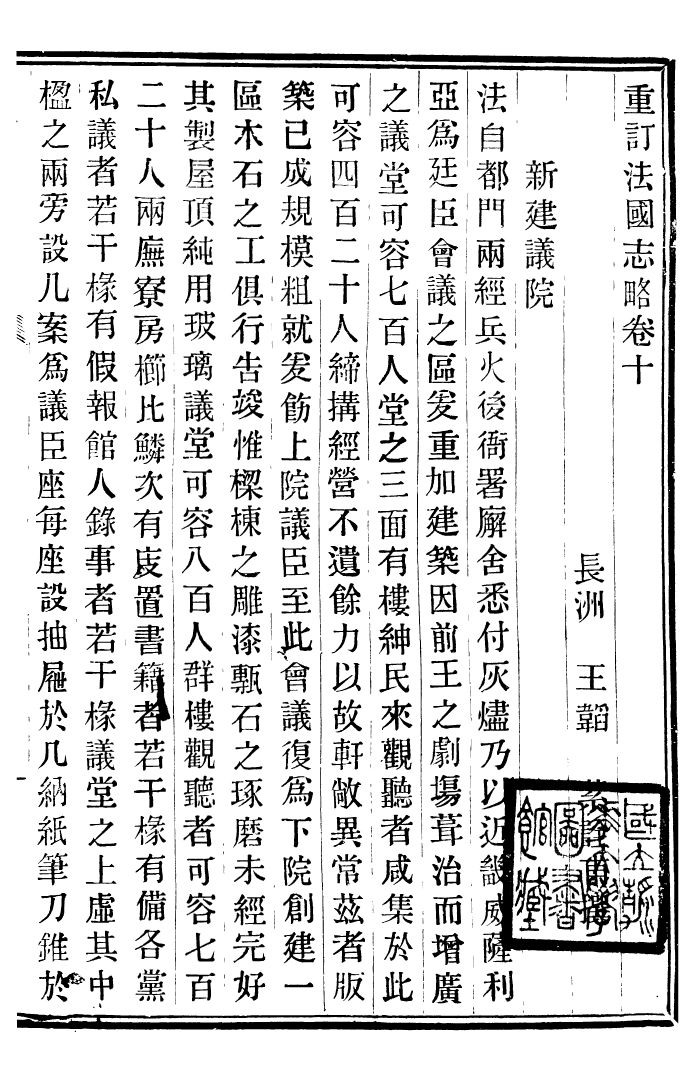 重訂法國志略卷十
長洲 王韜
新建議院
法自都門兩經兵火後衙署廨舍悉付灰燼乃以近畿威薩利
亞爲廷臣會議之區爰重加建築因前王之劇塲葺治而增廣
之議堂可容七百人堂之三面有樓紳民來觀聽者咸集於此
可容四百二十人締搆經營不遺餘力以故軒敞異常茲者版
築已成規模粗就爰飭上院議臣至此會議復爲下院創建一
區木石之工俱行告竣惟樑棟之雕漆甎石之琢磨未經完好
其製屋頂純用玻璃議堂可容八百人群樓觀聽者可容七百
二十人兩廡寮房櫛比鱗次有庋置書籍者若干椽有備各黨
私議者若干椽有假報館人錄事者若干椽議堂之上虛其中
楹之兩旁設几案爲議臣座每座設抽屜於几納紙筆刀錐於